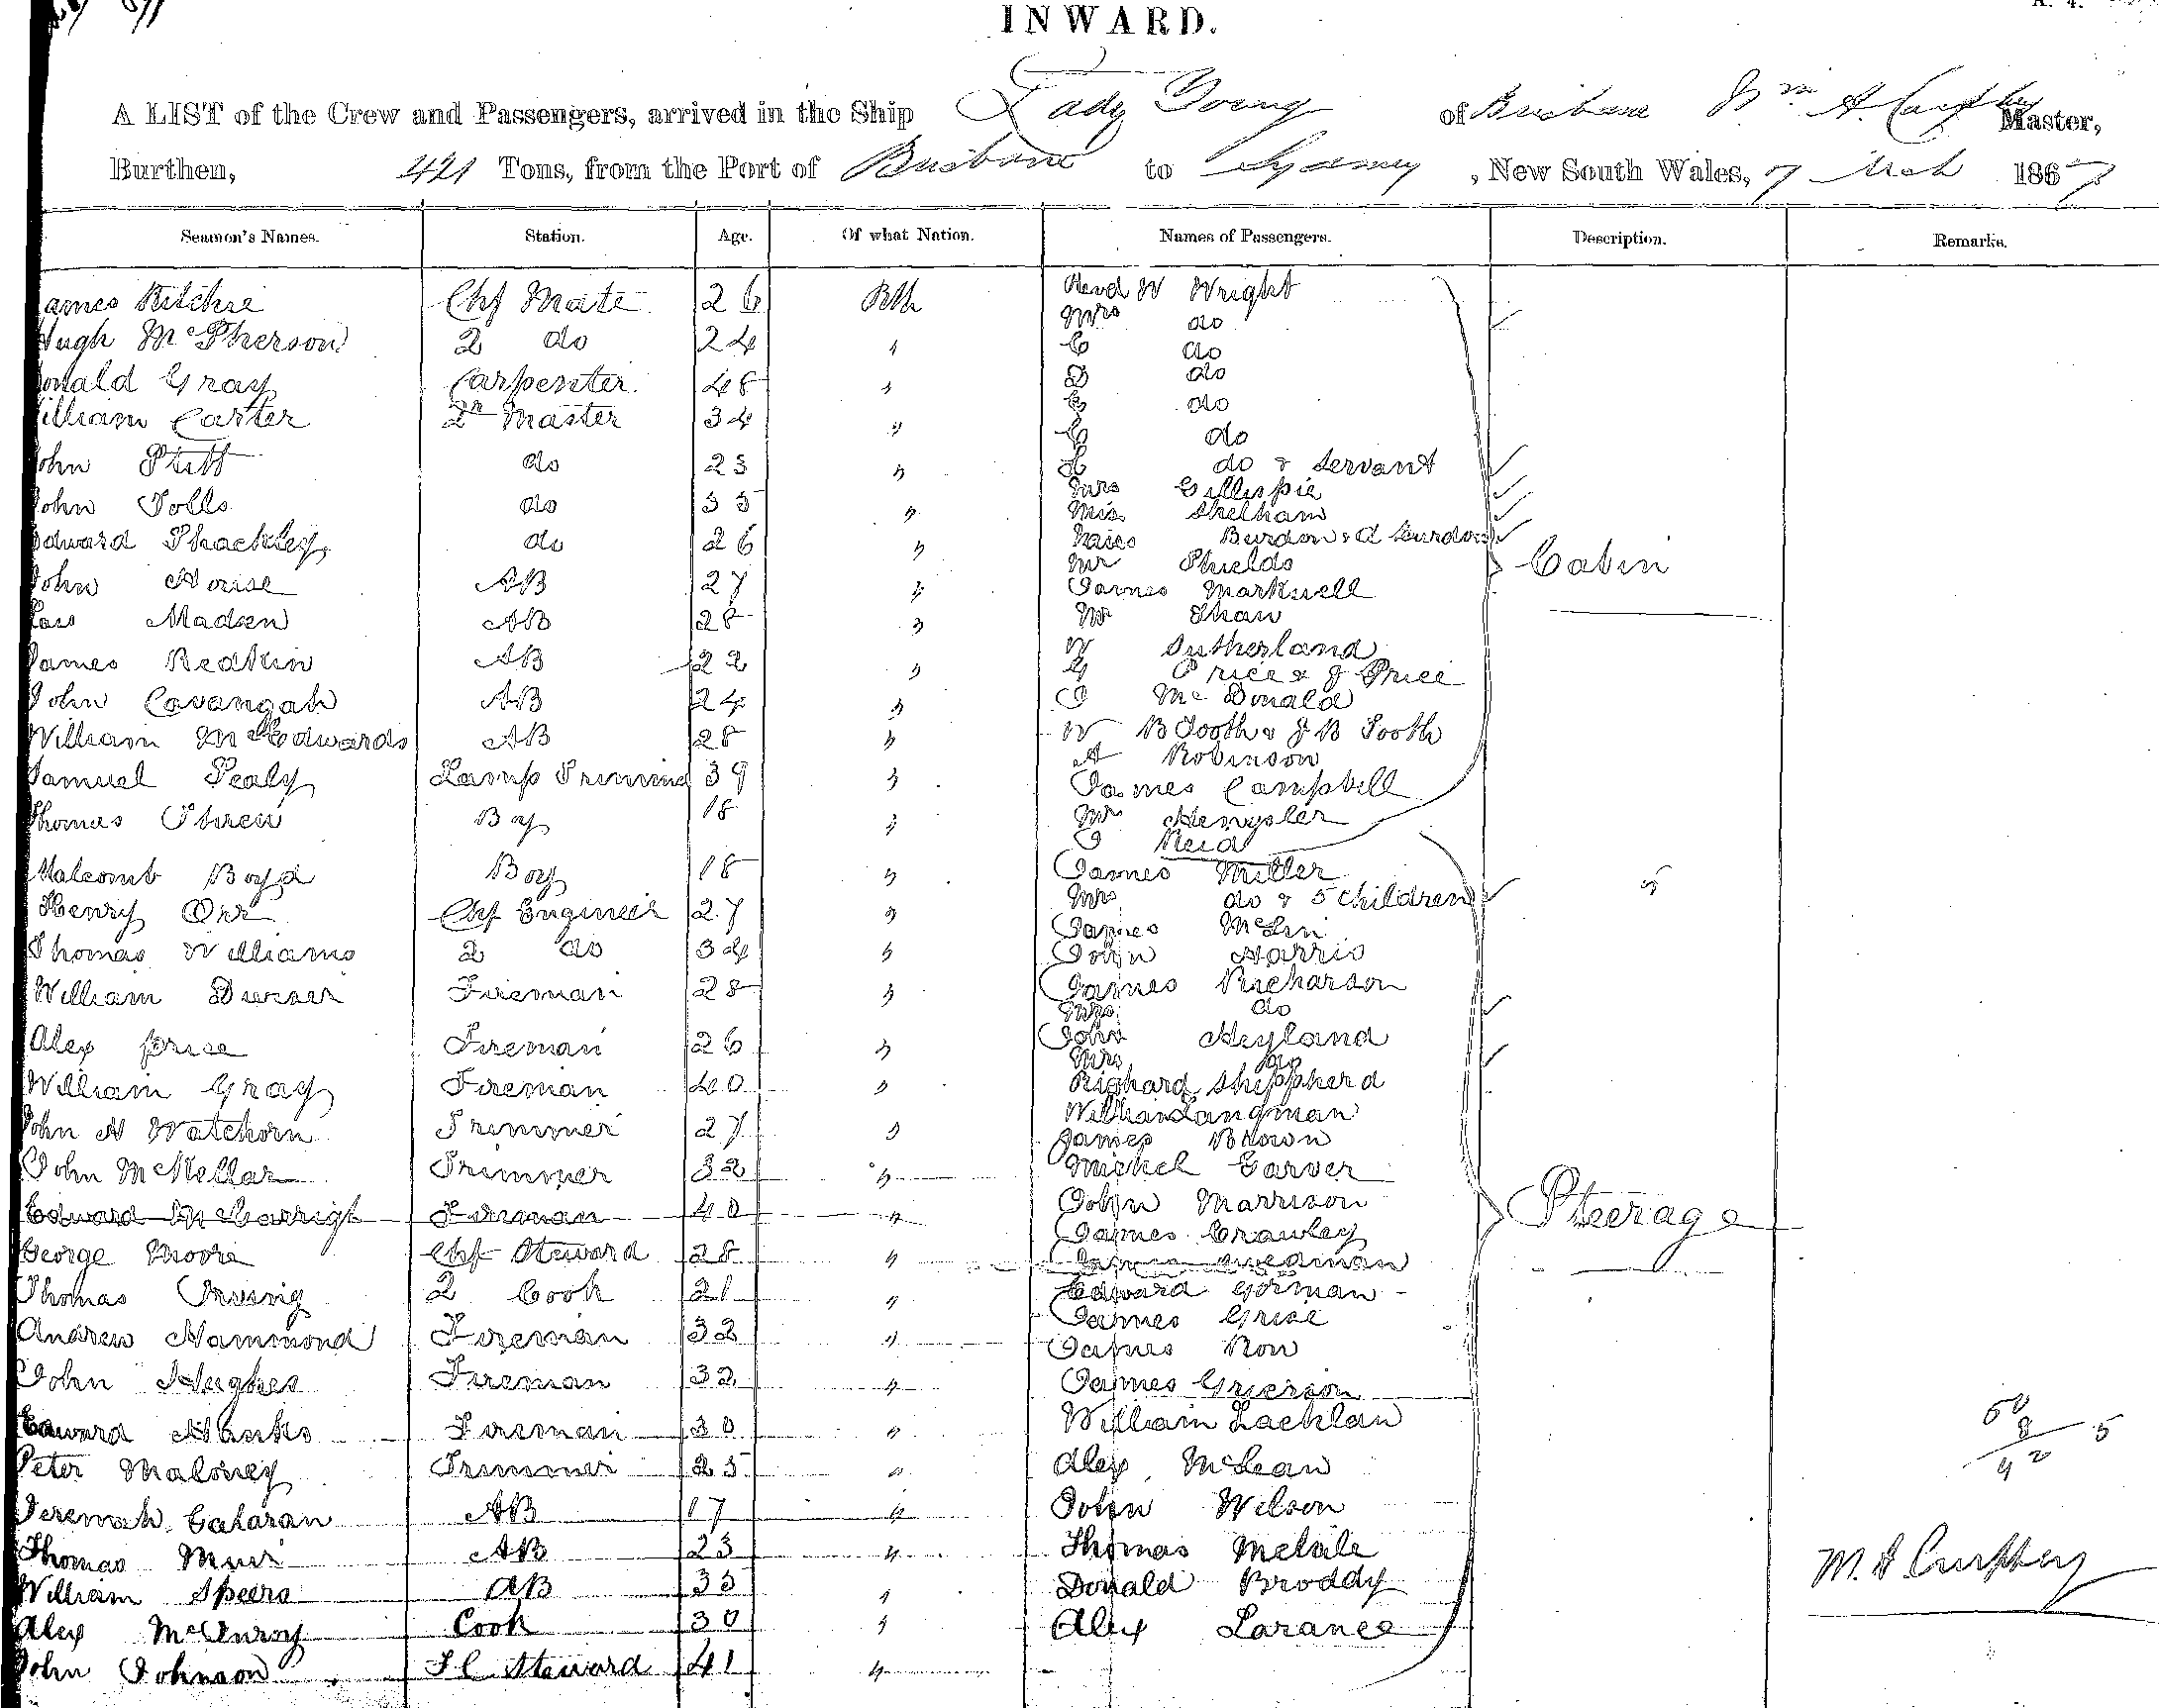 INWARD.
A LIST of the Crew and Passengers, arrived in the Ship Lady Young of Brisbane Wm A. Master,
Burthen, 421 Tons, from the Port of Brisbane to Sydney, New South Wales, 7 Mch 1867
Seamen's Names. Station. Age. Of what Nation. Names of Passengers. Description. Remarks.
ames Ritchie Chf Mate 26 Bth Revd W Wright
Mrs do
Hugh McPherson 2 do 24 " C do
onald Gray Carpenter 48 " D do
C do
illiam Carter Qr Master 34 " do
John do 23 " do & Servant
Mrs Gillespie
John Tolls do 35 " Miss Skelham
Edward Shackley do 26 " Burdon & A Burdon
Mr Shields
John AB 27 " James Markwell
Madsen AB 28 " Mr Shaw
W Sutherland
James Redkin AB 22 " Price & J Price
John Cavangah AB 24 " McDonald
William McEdwards AB 28 " W B Tooth & J B Tooth
A Robinson
Samuel Sealy Lamp Triming 39 " James Campbell
Thomas Boy 18 " Mr
Reid
Malcomb Boyd Boy 18 " James Miller
Mrs do & 5 Children
Henry Orr Chf Engineer 27 " James
Thomas Williams 2 do 34 " John Harris
William Fireman 28 " James Richarson
Mrs do
Alex Fireman 26 " John Heyland
Mrs do
William Gray Fireman 40 " Richard Shippherd
William Langman
John H Watchorn Trimmer 27 " James Brown
John McKellar Trimmer 32 " Michel Carver
Edward Fireman 40 " John Marrison
James Crawley
George Moore Chf Steward 28 "
Thomas Irving 2 Cook 21 " Edward Gorman
James Grise
Andrew Hammond Fireman 32 " James Row
John Hughes Fireman 32 " James Grierson
Edward Hanks Fireman 30 " William Lachlan
Peter Maloney Trimmer 25 " Alex McLean
Jeremah Calaran AB 17 " John Wilson
Thomas Muir AB 23 " Thomas
William Speers AB 35 " Donald Broddy
Alex McInroy Cook 30 " Alex Larance
John Johnson Steward 41 "
Cabin
Steerage